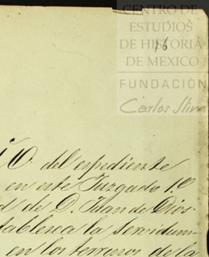 CENTRO DE
ESTUDIOS
DE HISTORIA
DE MÉXICO
FUNDACIÓN
Carlos Slim
16
O del espediente
en este Juzgado 1.º
d de D. Juan de Dios
tablesca la servidum
en los terrenos de la